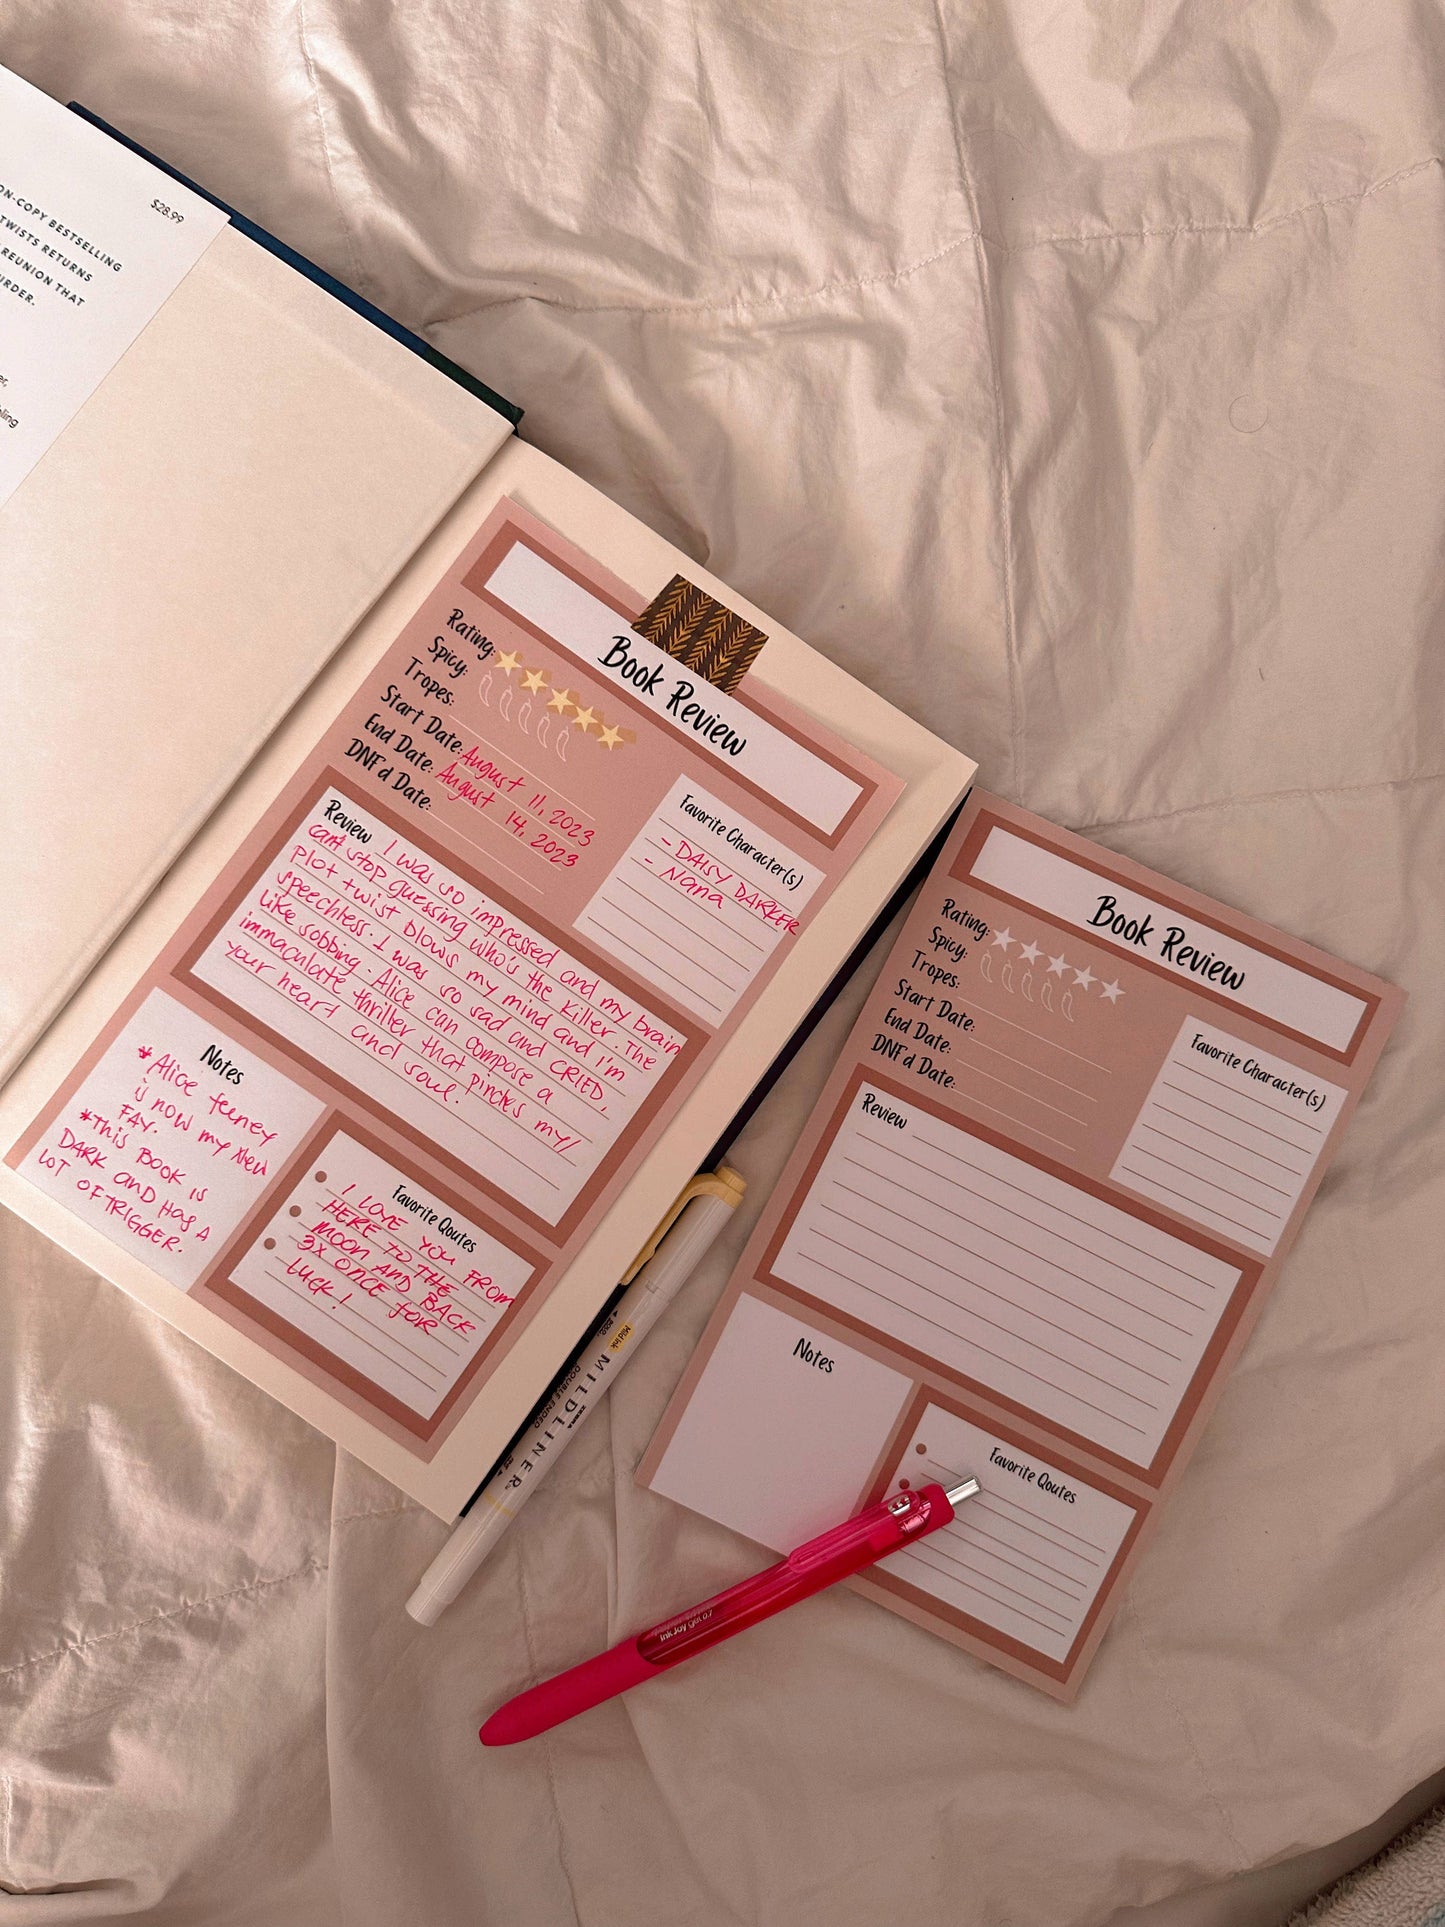 $28.99
ON-COPY BESTSELLING
TWISTS RETURNS
REUNION THAT
URDER.
Book Review
Rating:
Spicy:
Tropes:
Start Date: August 11, 2023
End Date: August 14, 2023
DNF'd Date:
Favorite Character(s)
- DAISY DARKER
- Nana
Review I was so impressed and my brain
can't stop guessing who's the killer. The
plot twist blows my mind and i'm
speechless. I was so sad and CRIED,
like sobbing. Alice can compose a
immaculate thriller that pinches my/
your heart and soul.
Notes
* Alice feeney
is now my new
FAV.
* This BOOK is
DARK and has a
LOT OF TRIGGER.
Favorite Qoutes
I LOVE YOU FROM
HERE TO THE
MOON AND BACK
3X ONCE for
LUCK!
Book Review
Rating:
Spicy:
Tropes:
Start Date:
End Date:
DNF'd Date:
Favorite Character(s)
Review
Notes
Favorite Qoutes
Mild Ink
ZEBRA
MILDLINER
DOUBLE ENDED
InkJoy gel 0.7